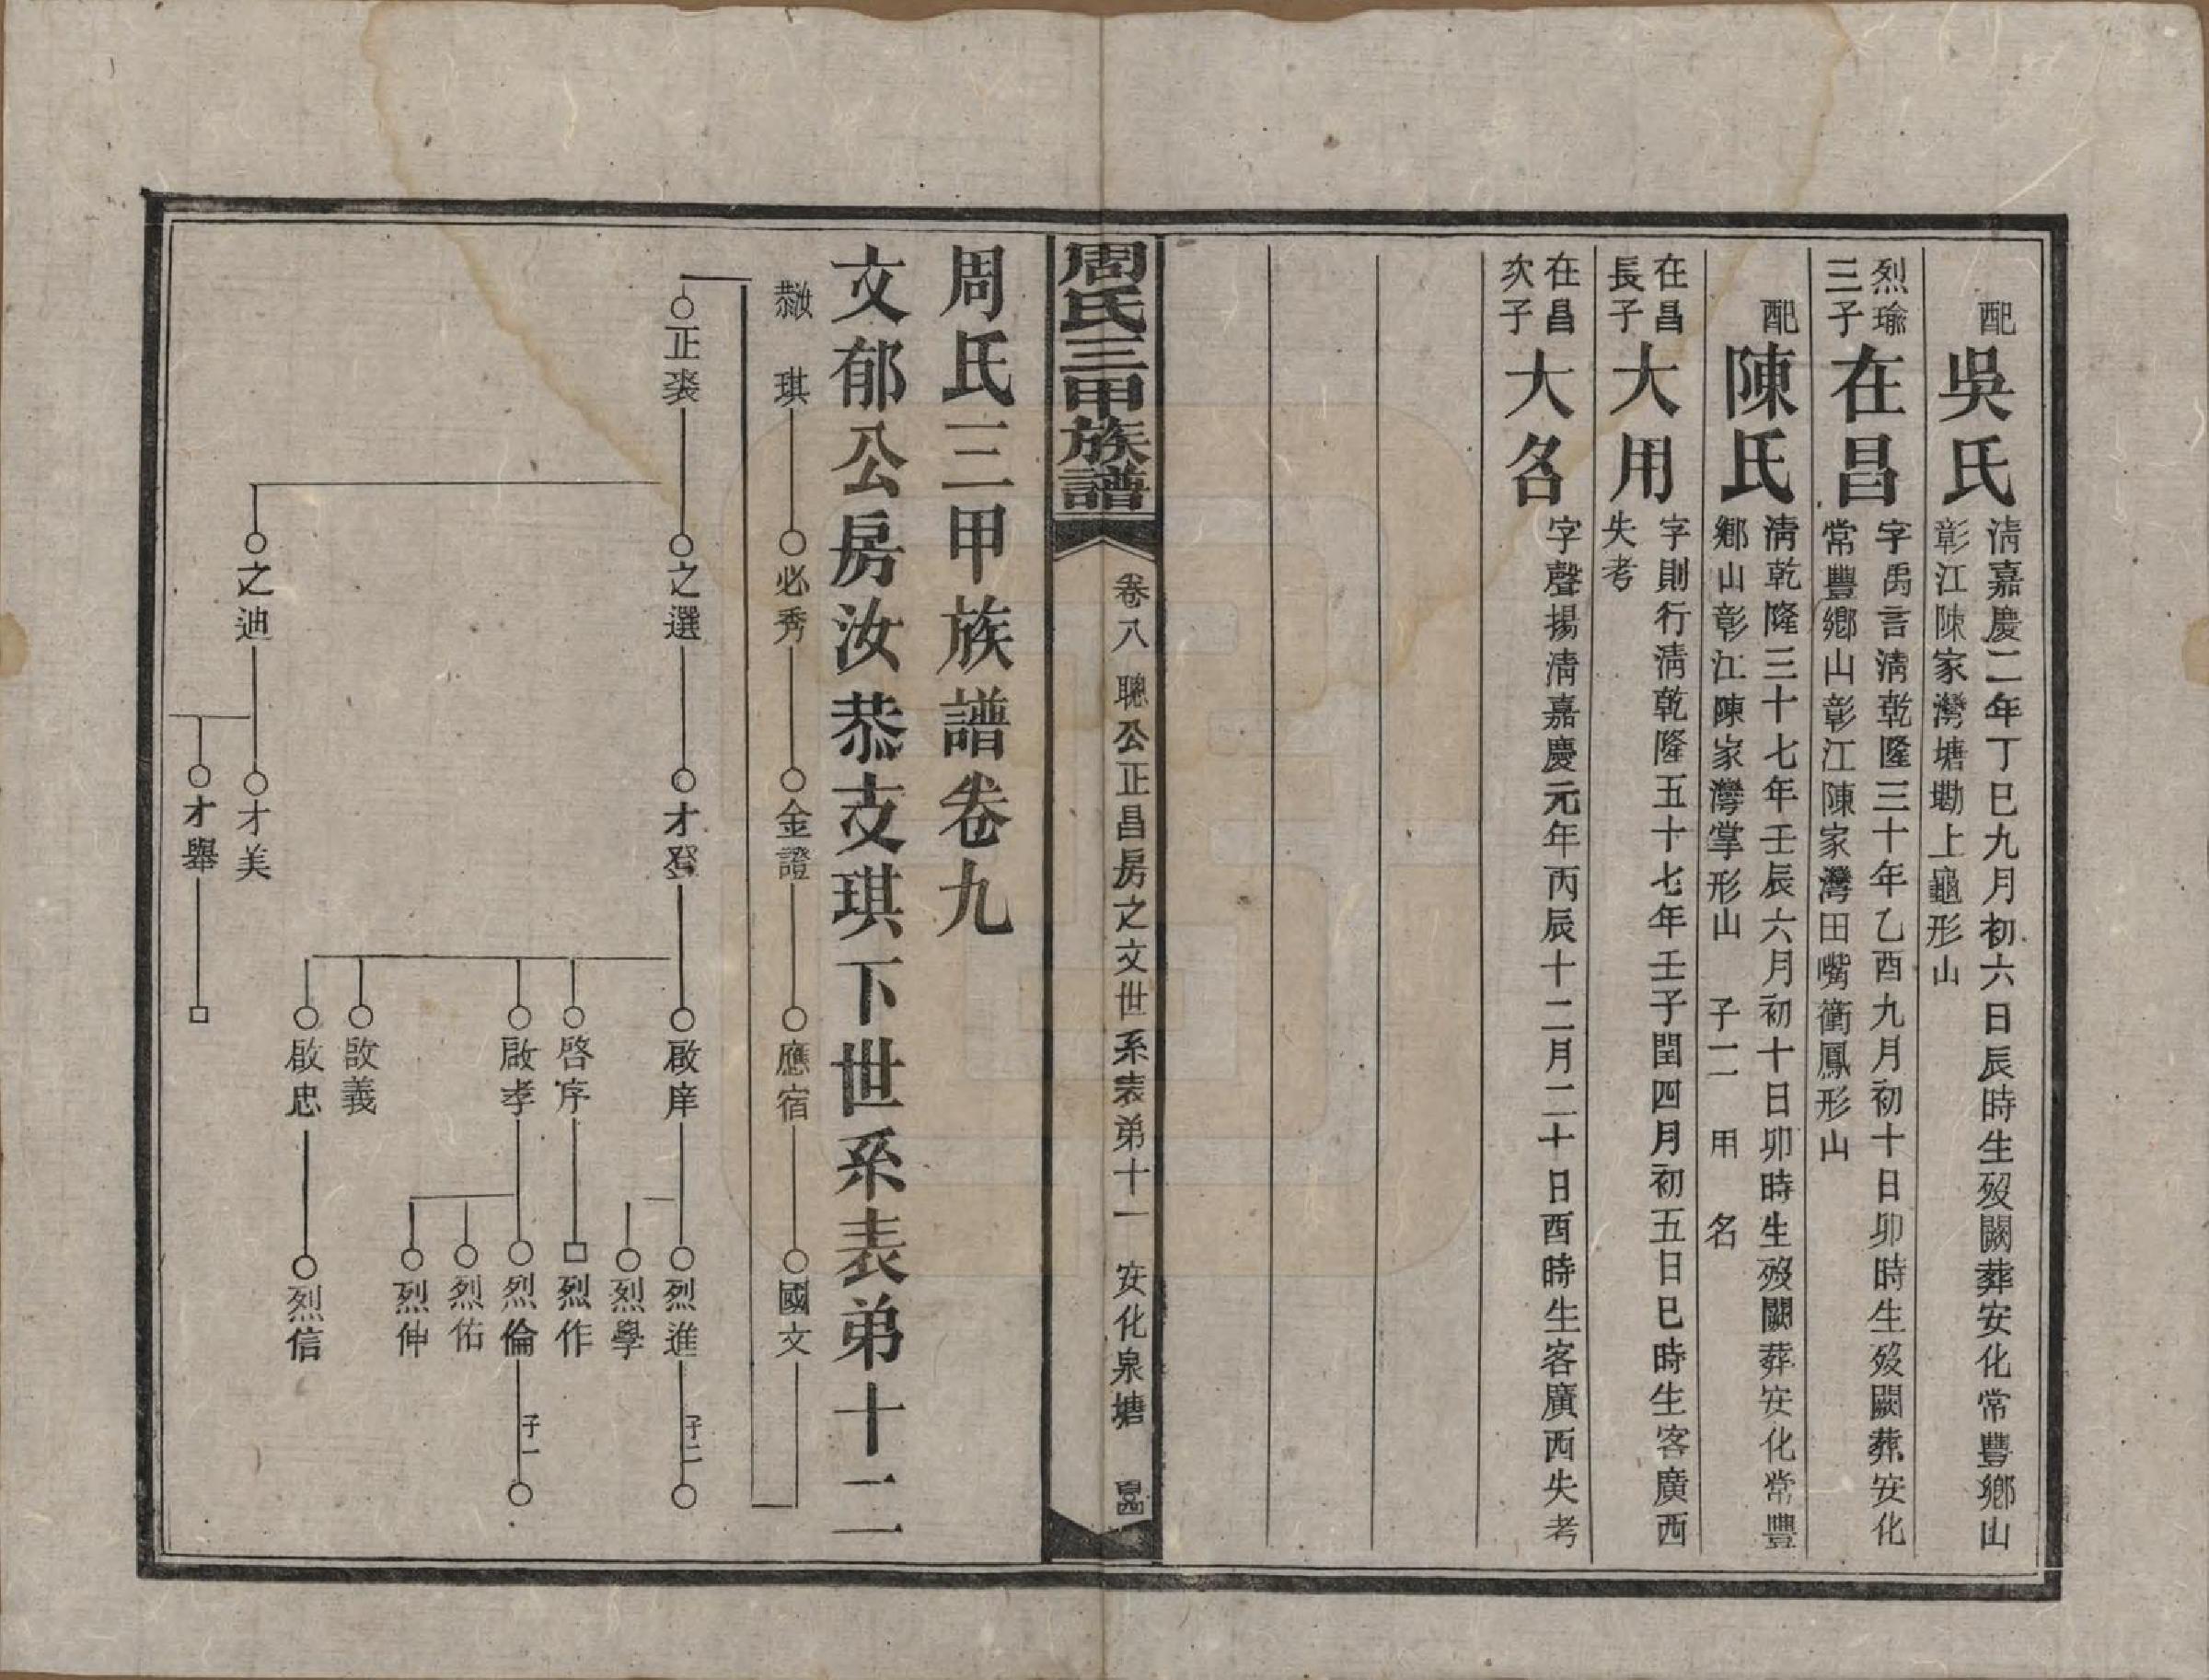 配
吳氏
清嘉慶二年丁巳九月初六日辰時生歿闕葬安化常豐鄉山
彰江陳家灣塘墈上龜形山
烈瑜
三子
在昌
字禹言清乾隆三十年乙酉九月初十日卯時生歿闕葬安化
常豐鄉山彰江陳家灣田嘴衝鳳形山
配
陳氏
清乾隆三十七年壬辰六月初十日卯時生歿闕葬安化常豐
鄉山彰江陳家灣掌形山 子二 用 名
在昌
長子
大用
字則行清乾隆五十七年壬子閏四月初五日巳時生客廣西
失考
在昌
次子
大名
字聲揚清嘉慶元年丙辰十二月二十日酉時生客廣西失考
周氏三甲族譜
卷八 聰公正昌房之文世系表弟十一 安化泉塘
周氏三甲族譜卷九
文郁公房汝恭支琪下世系表弟十二
汝恭 琪
必秀
金證
應宿
國文
正裘
之選
才登
啟庠
烈進
子二
烈學
啓序
烈作
啟孝
烈倫
子一
烈佑
烈伸
啟義
啟忠
烈信
之迪
才美
才舉